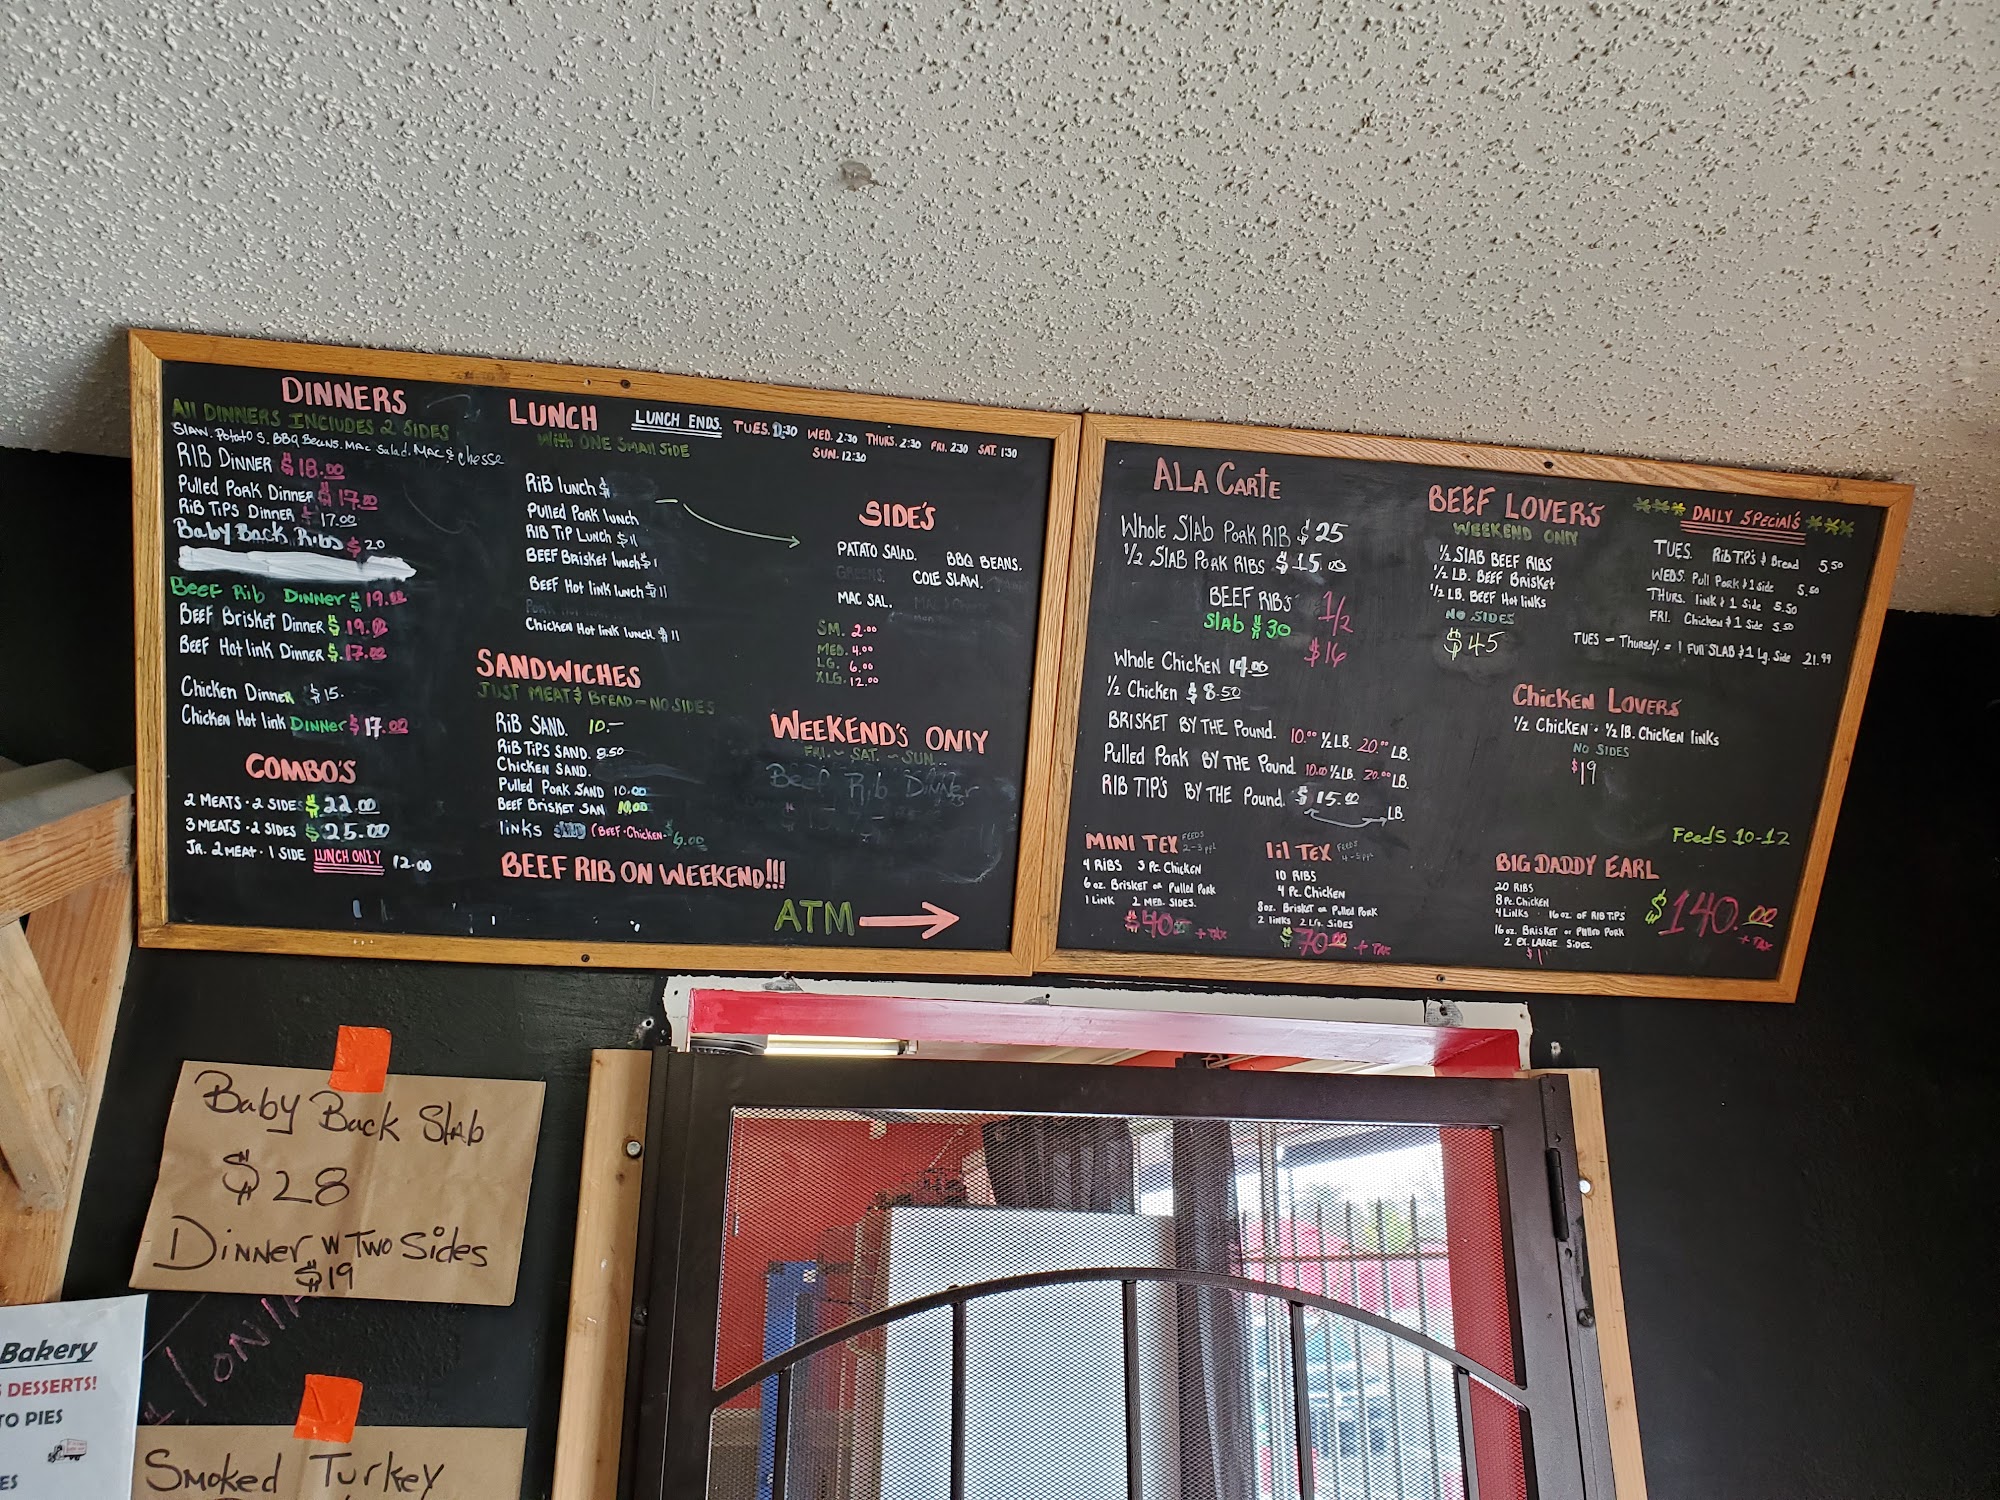 DINNERS
All DINNERS INCLUDES 2 SIDES
SlAW. Potato S. BBQ BEANS. MAC Salad. MAC & Chesse
RIB DINNER $18.00
Pulled Pork Dinner $17.00
RiB TiPS DINNER 17.00
Baby Back Ribs $20
BEEF Rib DINNER $19.00
BEEF BRISKET DINNER $19.00
BEEF Hot link DINNER $17.00
Chicken DINNER $15.
Chicken Hot link DINNER $17.00
COMBO'S
2 MEATS · 2 SIDES $22.00
3 MEATS · 2 SIDES $25.00
JR. 2 MEAT · 1 SIDE LUNCH ONLY 12.00
LUNCH
With ONE Small SIDE
LUNCH ENDS. TUES. 1:30 WED. 2:30 THURS. 2:30 FRI. 2:30 SAT. 1:30
SUN. 12:30
RiB lunch $
Pulled Pork lunch
RIB TiP LUNCH $11
BEEF BRisket lunch $1
BEEF Hot link lunch $11
Chicken Hot link lunch $11
SIDE'S
PATATO SALAD. BBQ BEANS.
GREENS. COlE SLAW.
MAC SAL.
SM. 2.00
MED. 4.00
LG. 6.00
XLG. 12.00
SANDWICHES
JUST MEAT & BREAD - NO SIDES
RiB SAND. 10.-
RiB TiPS SAND. 8.50
Chicken SAND.
Pulled Pork SAND 10.00
BEEF BRisket SAN 10.00
links (BEEF · Chicken $6.00
BEEF RIB ON WEEKEND!!!
WEEKEND'S ONlY
FRI. - SAT. - SUN..
Beef Rib Dinner
ATM
ALA CARTE
Whole Slab Pork RIB $25
1/2 SlAB PORK RIBS $15.00
BEEF RIBS 1/2
SlAb $30
$16
Whole Chicken 14.00
1/2 Chicken $8.50
BRISKET BY THE POUND. 10.00 1/2 LB. 20.00 LB.
Pulled Pork BY THE Pound 10.00 1/2 LB. 20.00 LB.
RIB TIP'S BY THE Pound. $15.00
LB.
BEEF LOVER'S
WEEKEND ONlY
1/2 SlAB BEEF RIBS
1/2 LB. BEEF BRISKET
1/2 LB. BEEF Hot links
NO SIDES
$45
*** DAILY SPECIAl'S ***
TUES. RIB TIP'S & Bread 5.50
WEDS. Pull Pork & 1 side 5.50
THURS. link & 1 Side 5.50
FRI. Chicken & 1 Side 5.50
TUES - Thursdy. = 1 Full SLAB & 1 Lg. Side 21.99
Chicken LOVERS
1/2 Chicken · 1/2 lB. Chicken links
NO SIDES
$19
MINI TEX FEEDS
4 RIBS 3 Pc. Chicken
6 oz. Brisket or Pulled Pork
1 LiNK 2 MED. SIDES.
$40 + TAX
lil TEX FEEDS
10 RIBS
4 Pc. Chicken
8oz. BRISKET or Pulled Pork
2 links 2 LG. SIDES
$70.00 + TAX
Feeds 10-12
BIG DADDY EARL
20 RIBS
8 Pc. Chicken
4 LINKS · 16 oz. OF RIB TIPS
16 oz. BRISKET or Pulled PORK
2 EX. LARGE SIDES.
$140.00
+ TAX
Baby Back Slab
$28
DINNER W TWO Sides
$19
Bakery
DESSERTS!
TO PIES
Smoked Turkey